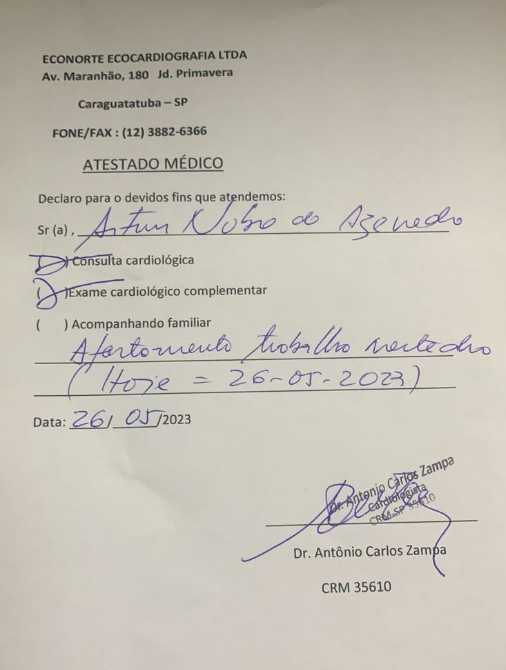 ECONORTE ECOCARDIOGRAFIA LTDA
Av. Maranhão, 180 Jd. Primavera
Caraguatatuba – SP
FONE/FAX : (12) 3882-6366
ATESTADO MÉDICO
Declaro para o devidos fins que atendemos:
Sr (a) , Artur Nobre de Azevedo
( ) Consulta cardiológica
( ) Exame cardiológico complementar
( ) Acompanhando familiar
Afastamento trabalho neste dia
( Hoje = 26-05-2023 )
Data: 26/ 05 /2023
Dr. Antonio Carlos Zampa
Cardiologista
CRM-SP 35610
Dr. Antônio Carlos Zampa
CRM 35610